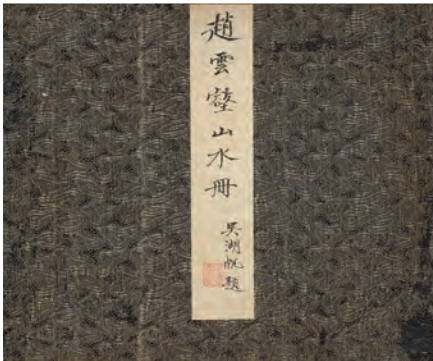 趙雲壑山水冊
吳湖帆題